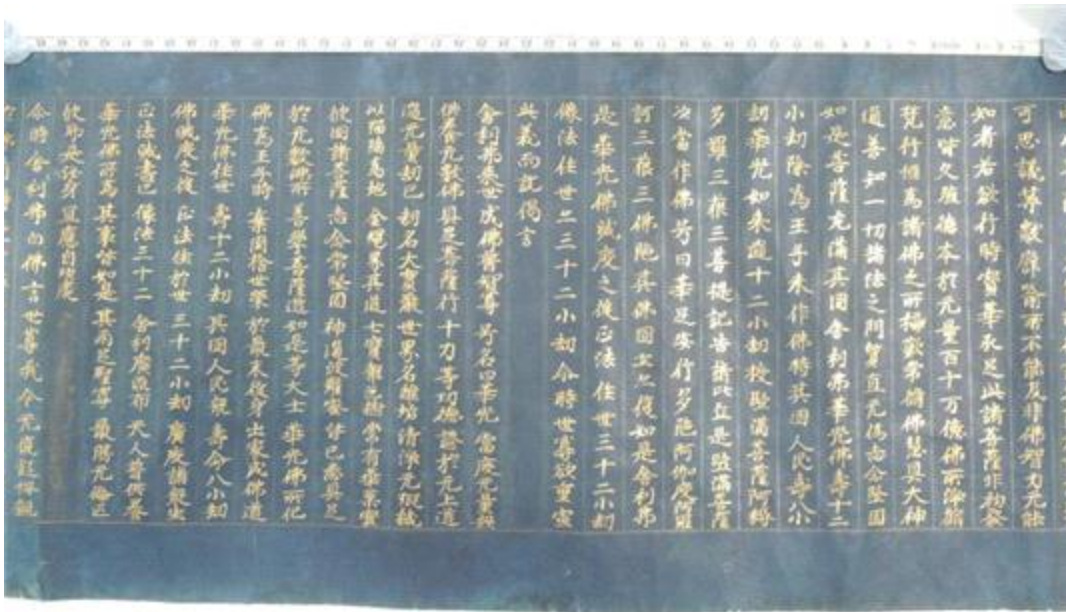 可思議算數譬喻所不能及非佛智力无能
知者若欲行時寶華承足此諸菩薩非初發
意皆久殖德本於无量百千万億佛所淨脩
梵行恒為諸佛之所稱歎常脩佛慧具大神
通善知一切諸法之門質直无偽志念堅固
如是菩薩充滿其國舍利弗華光佛壽十二
小劫除為王子未作佛時其國人民壽八小
劫華光如來過十二小劫授堅滿菩薩阿耨
多羅三藐三菩提記告諸比丘是堅滿菩薩
次當作佛号曰華足安行多陁阿伽度阿羅
訶三藐三佛陁其佛國土亦復如是舍利弗
是華光佛滅度之後正法住世三十二小劫
像法住世亦三十二小劫尒時世尊欲重宣
此義而說偈言
舍利弗來世 成佛普智尊 号名曰華光 當度无量衆
供養无數佛 具足菩薩行 十力等功德 證於无上道
過无量劫已 劫名大寶嚴 世界名離垢 清淨无瑕穢
以瑠璃為地 金繩界其道 七寶雜色樹 常有華菓實
彼國諸菩薩 志念常堅固 神通波羅蜜 皆已悉具足
於无數佛所 善學菩薩道 如是等大士 華光佛所化
佛為王子時 棄國捨世榮 於最末後身 出家成佛道
華光佛住世 壽十二小劫 其國人民衆 壽命八小劫
佛滅度之後 正法住於世 三十二小劫 廣度諸衆生
正法滅盡已 像法三十二 舍利廣流布 天人普供養
華光佛所為 其事皆如是 其兩足聖尊 最勝无倫匹
彼即是汝身 宜應自欣慶
尒時舍利弗白佛言世尊我今无復疑悔親